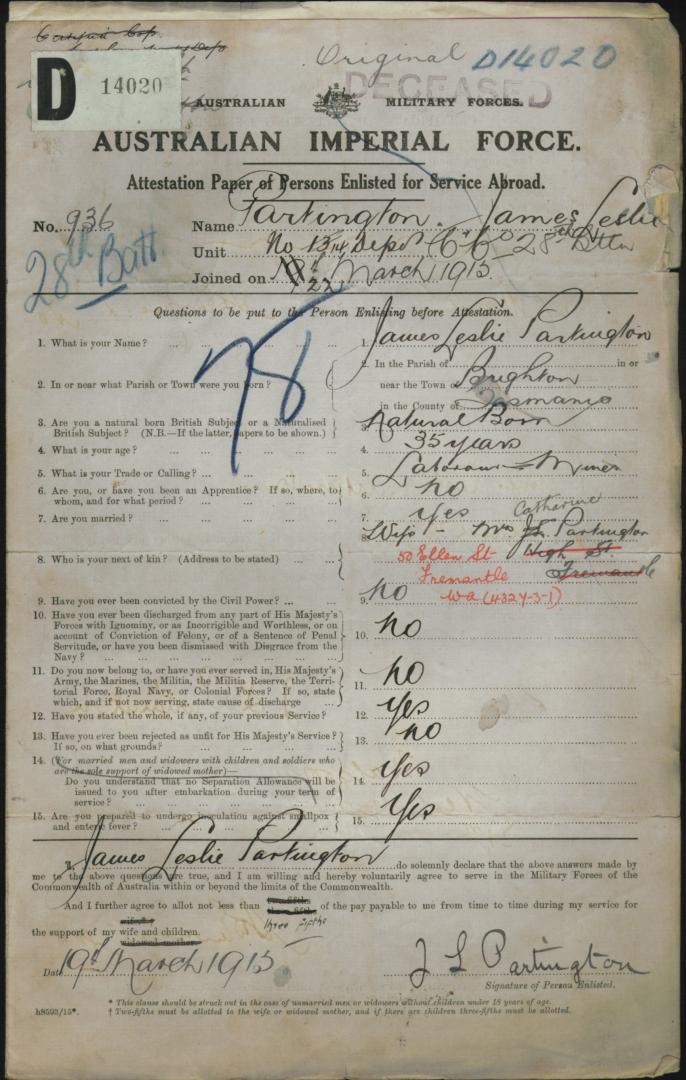 Certified Copy.
Original D14020
D 14020
DECEASED
AUSTRALIAN MILITARY FORCES.
AUSTRALIAN IMPERIAL FORCE.
Attestation Paper of Persons Enlisted for Service Abroad.
No. 936 Name Partington. James Leslie
28th Batt Unit No 13/14 Depot "C" Co 28th Bttn
Joined on 22 March 1915
Questions to be put to the Person Enlisting before Attestation.
78
1. What is your Name? ... ... 1. James Leslie Partington
2. In or near what Parish or Town were you born? ... 2. In the Parish of in or
near the Town of Brighton
in the County of Tasmania
3. Are you a natural born British Subject or a Naturalised
British Subject? (N.B.—If the latter, papers to be shown.) 3. Natural Born
4. What is your age? ... ... 4. 35 years
5. What is your Trade or Calling? ... ... 5. Labourer - Miner
6. Are you, or have you been an Apprentice? If so, where, to
whom, and for what period? ... ... 6. no
7. Are you married? ... ... 7. yes
Catharine
8. Who is your next of kin? (Address to be stated) ... 8. Wife - Mrs J.L. Partington
50 Ellen St High St
Fremantle Fremantle
WA (4324-3-1)
9. Have you ever been convicted by the Civil Power? ... 9. no
10. Have you ever been discharged from any part of His Majesty's
Forces with Ignominy, or as Incorrigible and Worthless, or on
account of Conviction of Felony, or of a Sentence of Penal
Servitude, or have you been dismissed with Disgrace from the
Navy? ... ... 10. no
11. Do you now belong to, or have you ever served in, His Majesty's
Army, the Marines, the Militia, the Militia Reserve, the Terri-
torial Force, Royal Navy, or Colonial Forces? If so, state
which, and if not now serving, state cause of discharge 11. no
12. Have you stated the whole, if any, of your previous Service? 12. yes
13. Have you ever been rejected as unfit for His Majesty's Service?
If so, on what grounds? ... ... 13. no
14. (For married men and widowers with children and soldiers who
are the sole support of widowed mother)—
Do you understand that no Separation Allowance will be
issued to you after embarkation during your term of
service? ... ... 14. yes
15. Are you prepared to undergo inoculation against smallpox
and enteric fever? ... ... 15. yes
I, James Leslie Partington do solemnly declare that the above answers made by
me to the above questions are true, and I am willing and hereby voluntarily agree to serve in the Military Forces of the
Commonwealth of Australia within or beyond the limits of the Commonwealth.
And I further agree to allot not less than three fifths of the pay payable to me from time to time during my service for
the support of my wife and children.
widowed mother
Date 19th March 1915 J L Partington
Signature of Person Enlisted.
* This clause should be struck out in the case of unmarried men or widowers without children under 18 years of age.
h8593/15*. † Two-fifths must be allotted to the wife or widowed mother, and if there are children three-fifths must be allotted.